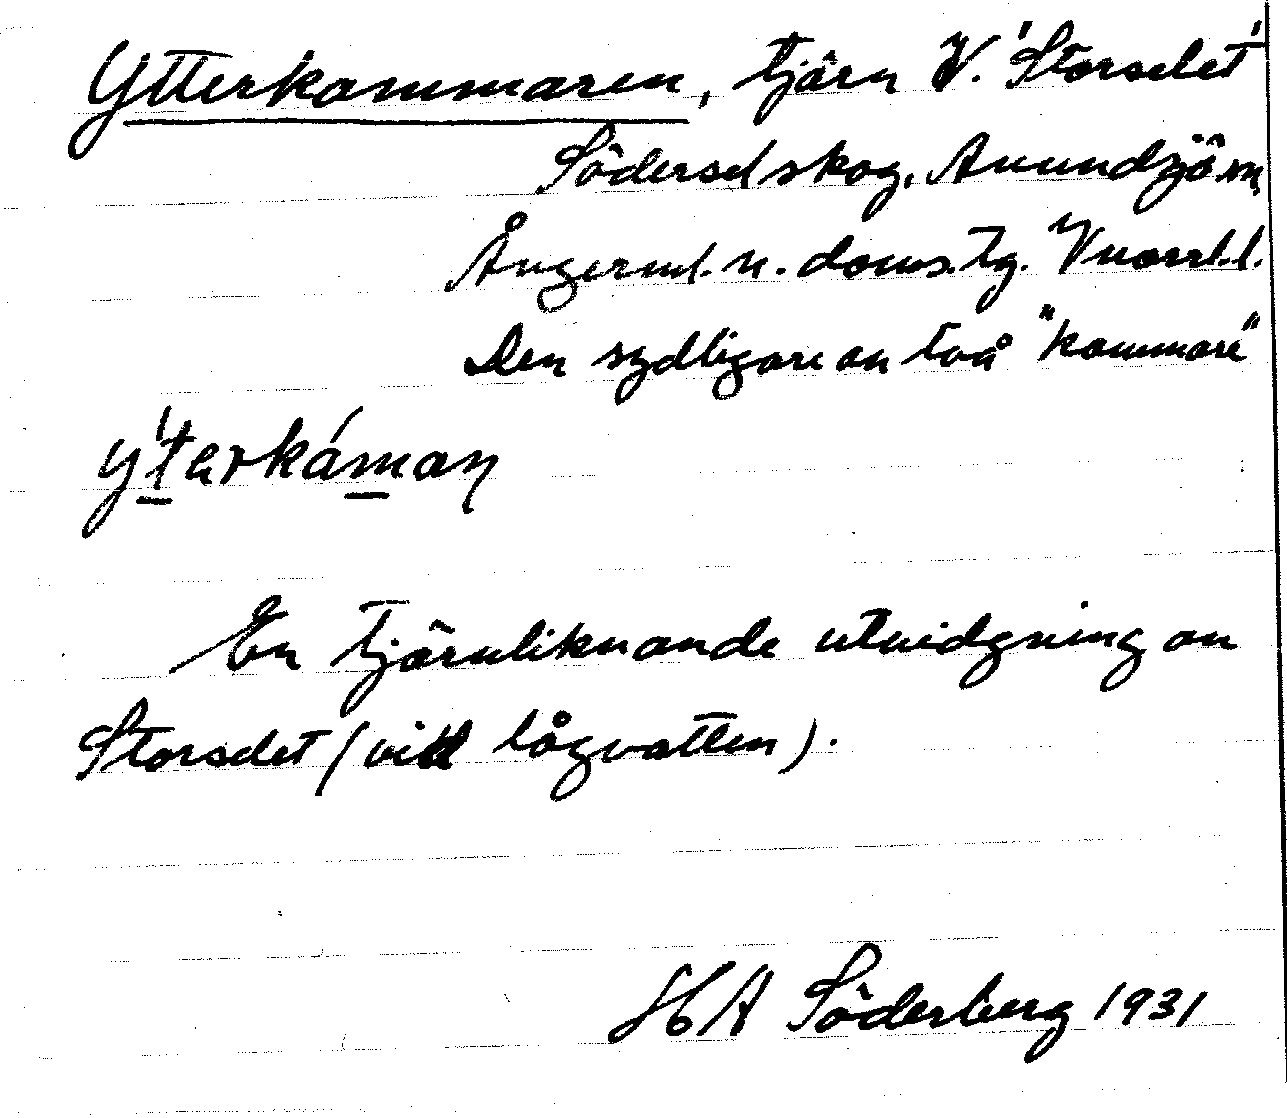 Ytterkammaren, tjärn V. 'Storselet'
Södersel skog, Anundsjö sn
Ångerml. n. doms.tg. Vnorrl.l.
Den sydligare av två "kammare"
ytarkáman
En tjärnliknande utvidgning av
Storselet (vid lågvatten).
HA Söderberg 1931